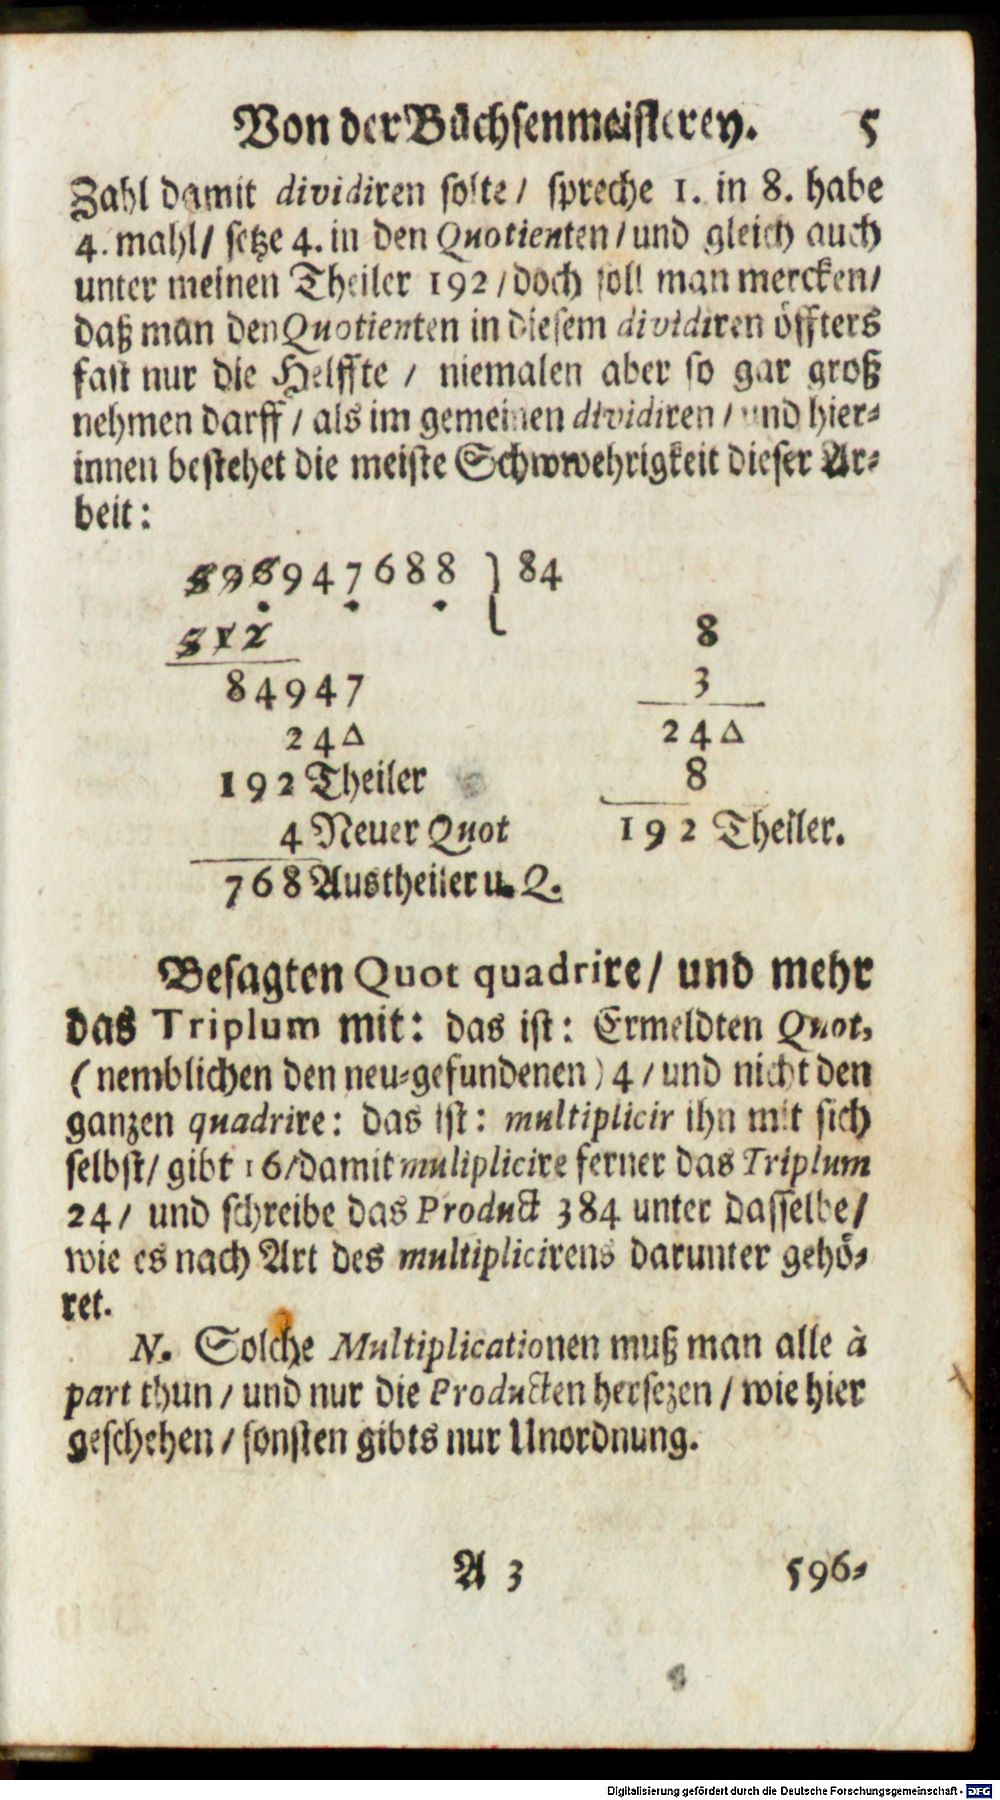 Von der Büchsenmeisterey. 5
Zahl damit dividiren solte / spreche 1. in 8. habe
4. mahl / setze 4. in den Quotienten / und gleich auch
unter meinen Theiler 192 / doch soll man mercken /
daß man den Quotienten in diesem dividiren öffters
fast nur die Helffte / niemalen aber so gar groß
nehmen darff / als im gemeinen dividiren / und hier-
innen bestehet die meiste Schwwehrigkeit dieser Ar-
beit:
596947688 84
512 8
84947 3
24Δ 24Δ
192 Theiler 8
4 Neuer Quot 192 Theiler.
768 Austheiler u. Q.
Besagten Quot quadrire / und mehr
das Triplum mit: das ist: Ermeldten Quot,
( nemblichen den neu-gefundenen ) 4 / und nicht den
ganzen quadrire: das ist: multiplicir ihn mit sich
selbst / gibt 16 / damit muliplicire ferner das Triplum
24 / und schreibe das Product 384 unter dasselbe /
wie es nach Art des multiplicirens darunter gehö-
ret.
N. Solche Multiplicationen muß man alle à
part thun / und nur die Producten hersezen / wie hier
geschehen / sonsten gibts nur Unordnung.
A 3 596-
Digitalisierung gefördert durch die Deutsche Forschungsgemeinschaft - DFG